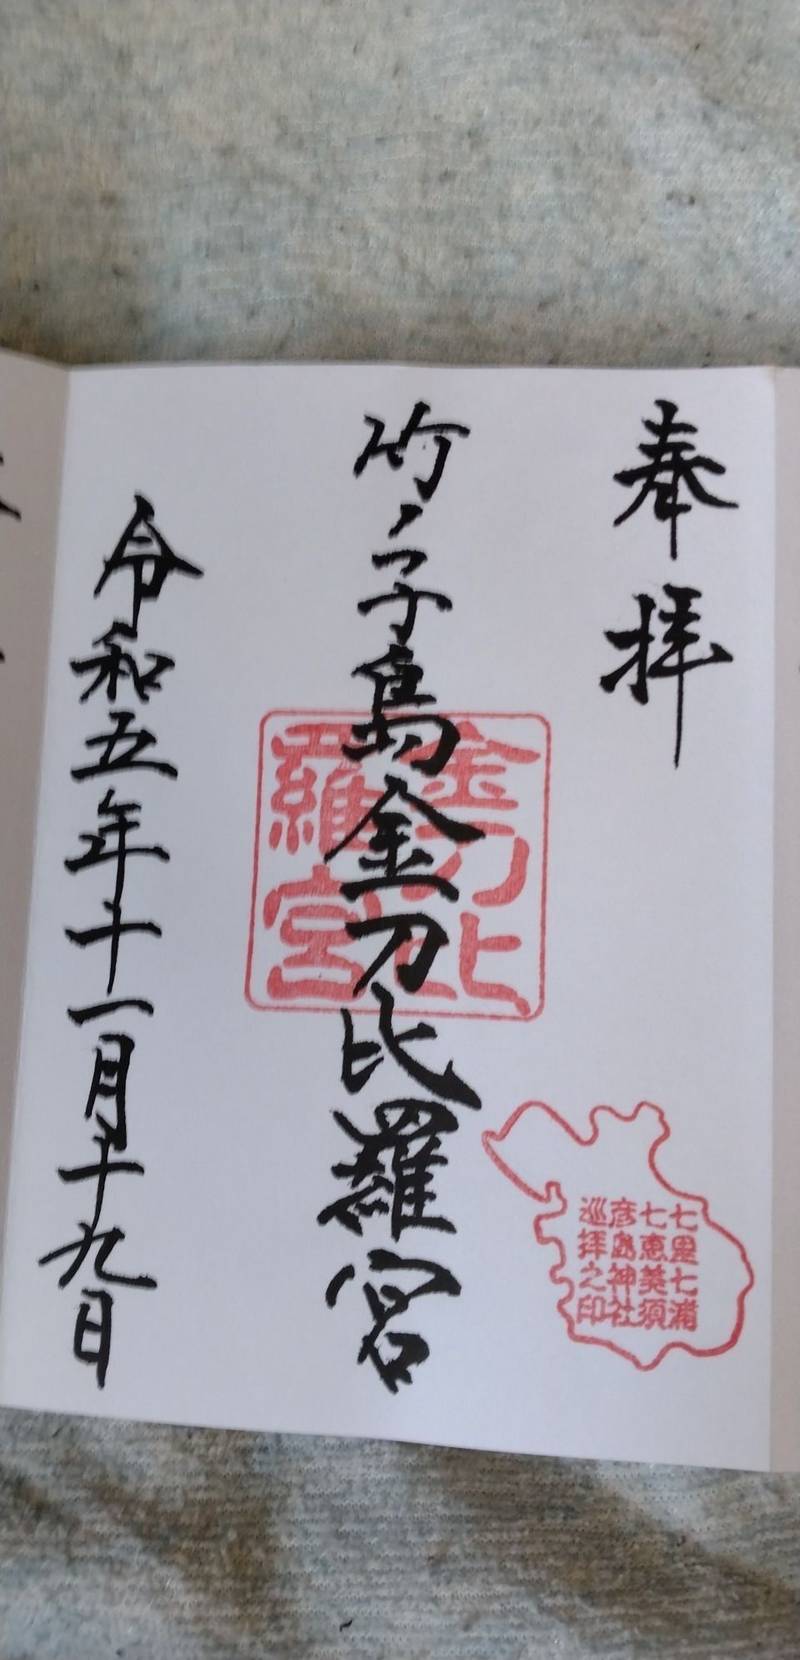 奉拝
竹ノ子島金刀比羅宮
令和五年十一月十九日
金刀比
羅宮
七里七浦
七恵美須
彦島神社
巡拝之印